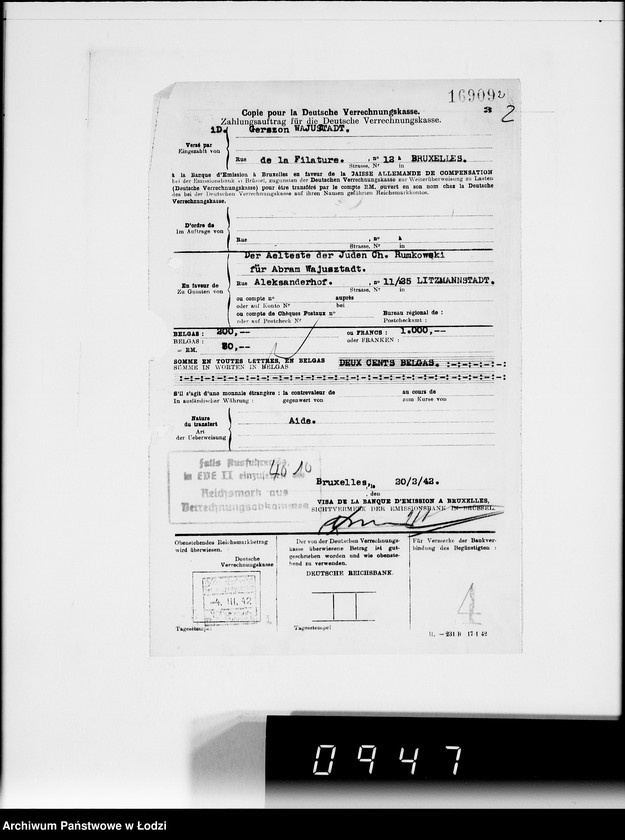 169092
3 2
Copie pour la Deutsche Verrechnungskasse.
Zahlungsauftrag für die Deutsche Verrechnungskasse.
1D. Gerszon WAJUSTADT.
Versé par
Eingezahlt von
Rue de la Filature. , nº 12 à BRUXELLES.
Strasse, Nº in
à la Banque d'Emission à Bruxelles en faveur de la CAISSE ALLEMANDE DE COMPENSATION
bei der Emissionsbank in Brüssel, zugunsten der Deutschen Verrechnungskasse zur Weiterüberweisung zu Lasten
(Deutsche Verrechnungskasse) pour être transféré par le compte RM. ouvert en son nom chez la Deutsche
des bei der Deutschen Verrechnungskasse auf ihren Namen geführten Reichsmarkkontos.
Verrechnungskasse.
D'ordre de
Im Auftrage von
Rue , nº à
Strasse, Nº in
Der Aelteste der Juden Ch. Rumkowski
für Abram Wajusztadt.
En faveur de
Zu Gunsten von
Rue Aleksanderhof. , nº 11/25 LITZMANNSTADT.
Strasse, Nº in
ou compte nº auprès
oder auf Konto Nº bei
ou compte de Chèques Postaux nº Bureau régional de :
oder auf Postcheck Nº Postcheckamt :
BELGAS : 200,-- ou FRANCS : 1.000,--
BELGAS : oder FRANKEN :
= RM. 80,--
SOMME EN TOUTES LETTRES, EN BELGAS DEUX CENTS BELGAS. :-:-:-:-:-:
SUMME IN WORTEN IN BELGAS
S'il s'agit d'une monnaie étrangère : la contrevaleur de au cours de
In ausländischer Währung : gegenwert von zum Kurse von
Nature
du transfert
Art
der Ueberweisung
Aide.
falls Ausfuhrerl.
in EDE II einzu
4010
Reichsmark aus
Verrechnungsabkommen
Bruxelles, le 20/2/42.
, den
VISA DE LA BANQUE D'EMISSION A BRUXELLES,
SICHTVERMERK DER EMISSIONSBANK IN BRÜSSEL.
Obenstehendes Reichsmarkbetrag
wird überwiesen.
Deutsche
Verrechnungskasse
-4. III. 42
Tagesstempel
Der von der Deutschen Verrechnungs-
kasse überwiesene Betrag ist gut-
geschrieben worden und wie obenste-
hend zu verwenden.
DEUTSCHE REICHSBANK.
Tagesstempel
Für Vermerke der Bankver-
bindung des Begünstigten :
4
B. - 231 B 17 1 42
0947
Archiwum Państwowe w Łodzi